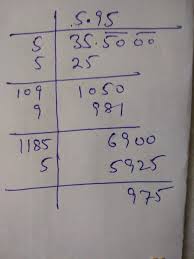 5.95
5 35.50 00
5 25
109 1050
9 981
1185 6900
5 5925
975